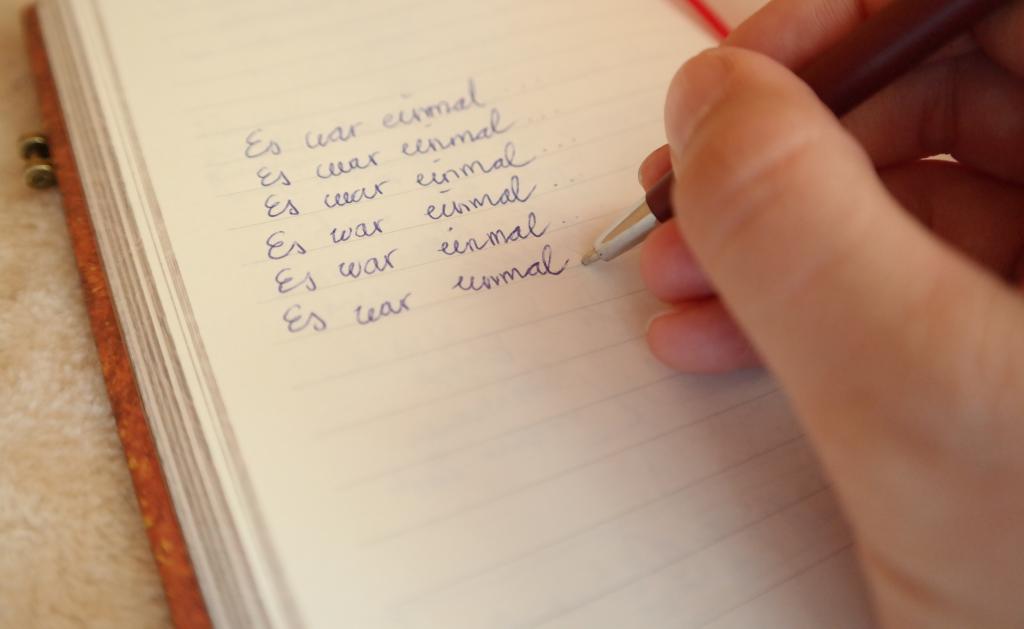 Es war einmal ...
Es war einmal ...
Es war einmal ...
Es war einmal ...
Es war einmal ...
Es war einmal